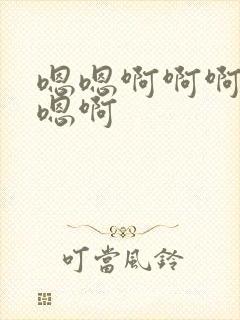 嗯嗯啊啊啊
嗯啊
叮當風鈴